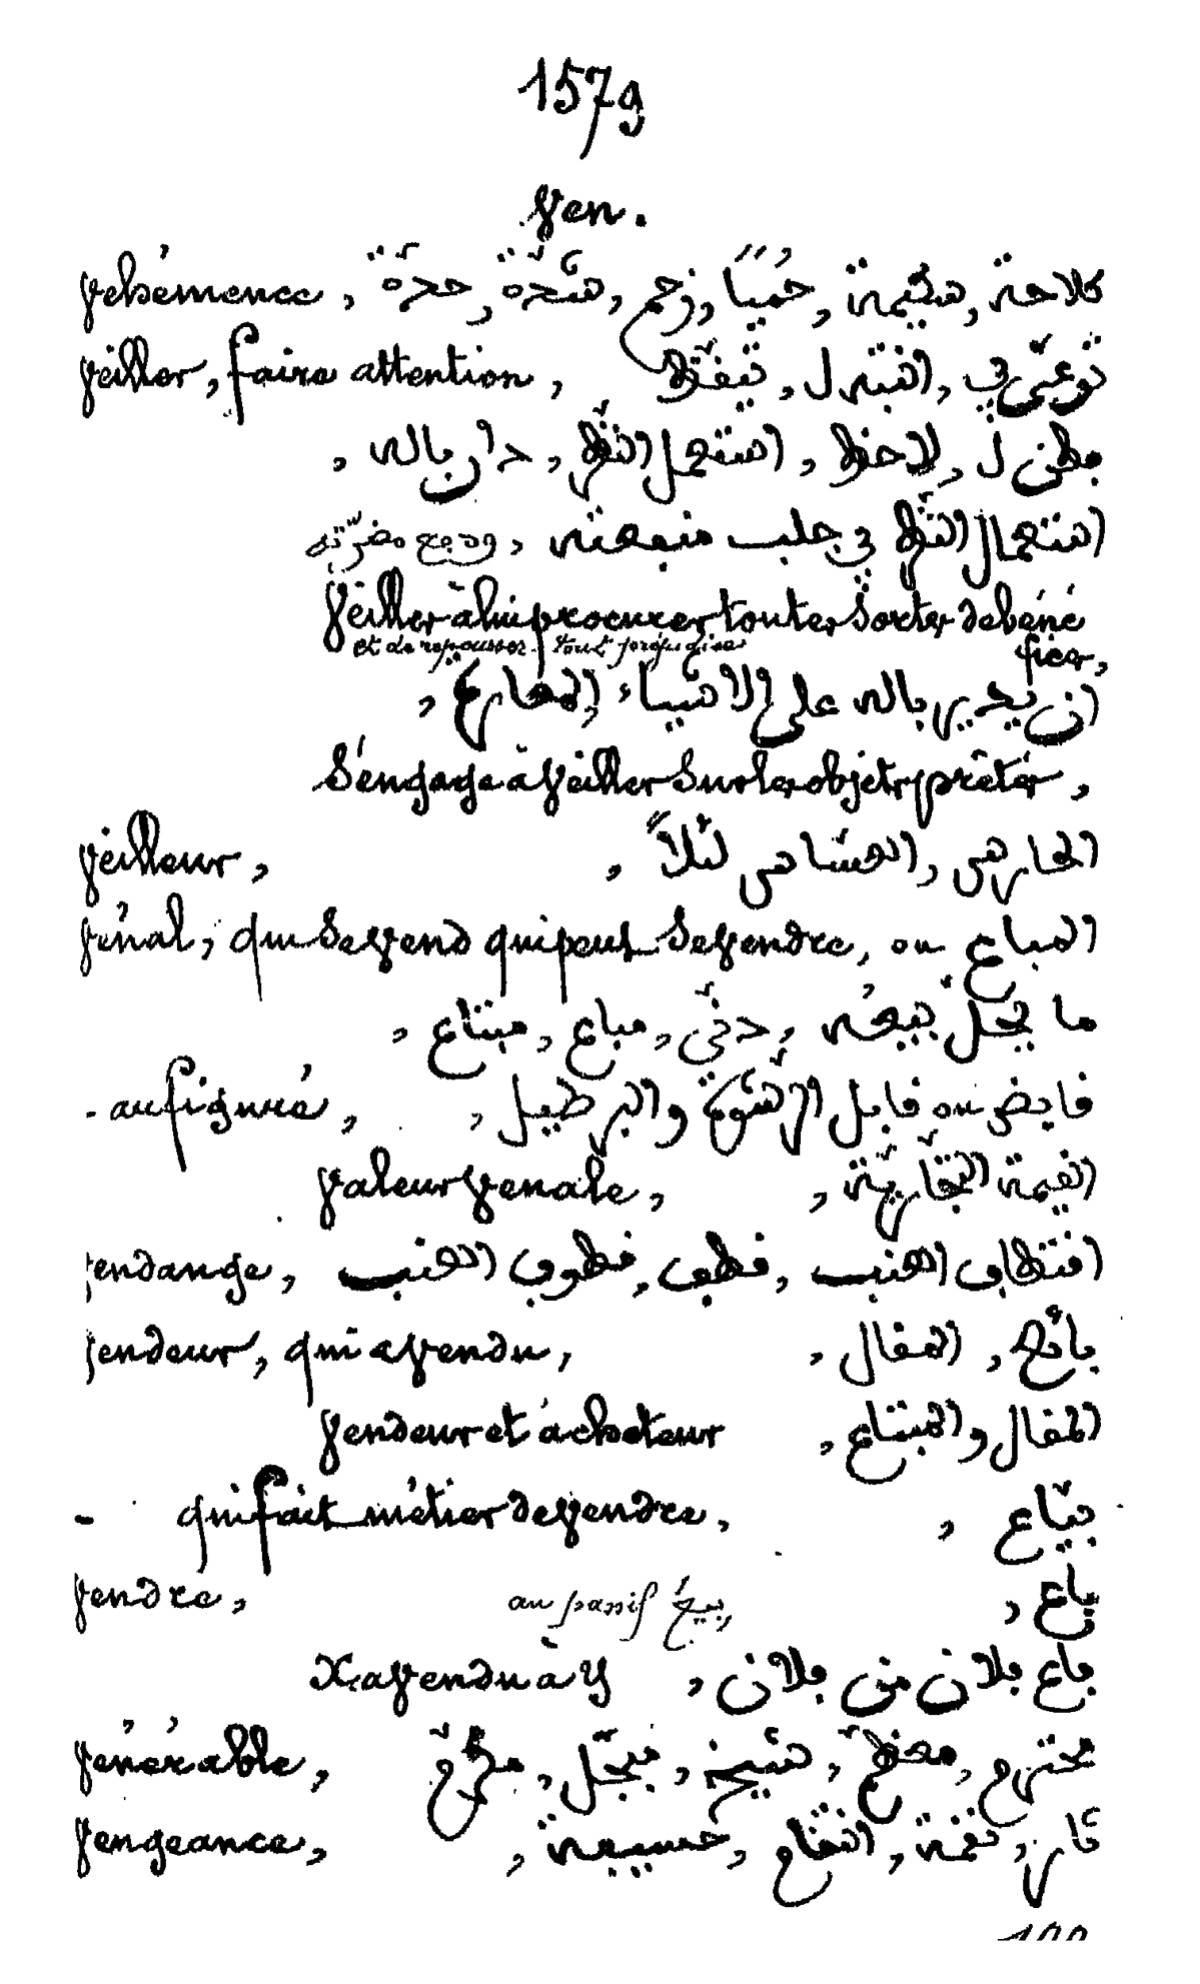 1579
Ven.
Véhémence, حدّة, شدّة, زخم, حُمَيّا, شكيمة
Veiller, faire attention, تيقّظ, انتبه ل, توعّى في
بطن ل, لاحظ, استعمل النظر, دار باله,
استعمال النظر في جلب منفعته, ودفع مضرّته
Veiller à lui procurer toutes sortes de béné
et de repousser tout préjudice
fices,
ان يدير باله على الاشياء المعارة,
S'engage à veiller sur les objets prêtés,
Veilleur, الحارس, العساس ليلاً,
Vénal, qui se vend qui peut se vendre, ou المباع
ما يحلّ بيعه, دنيّ, مباع, مبتاع,
- au figuré, فايض ou قابل الرشوة والبرطيل,
Valeur vénale, القيمة التجّاريّة,
Vendange, اقتطاف العنب, قطف, قطوف العنب
Vendeur, qui a vendu, بائع, المقال,
Vendeur et acheteur المقال والمبتاع,
- qui fait métier de vendre, بيّاع,
Vendre, au passif بيع باع,
X a vendu à Y باع فلان من فلان,
Vénérable, محترم, معظّم, شيخ, مبجّل,
Vengeance, ثار, نقمة, انتقام,